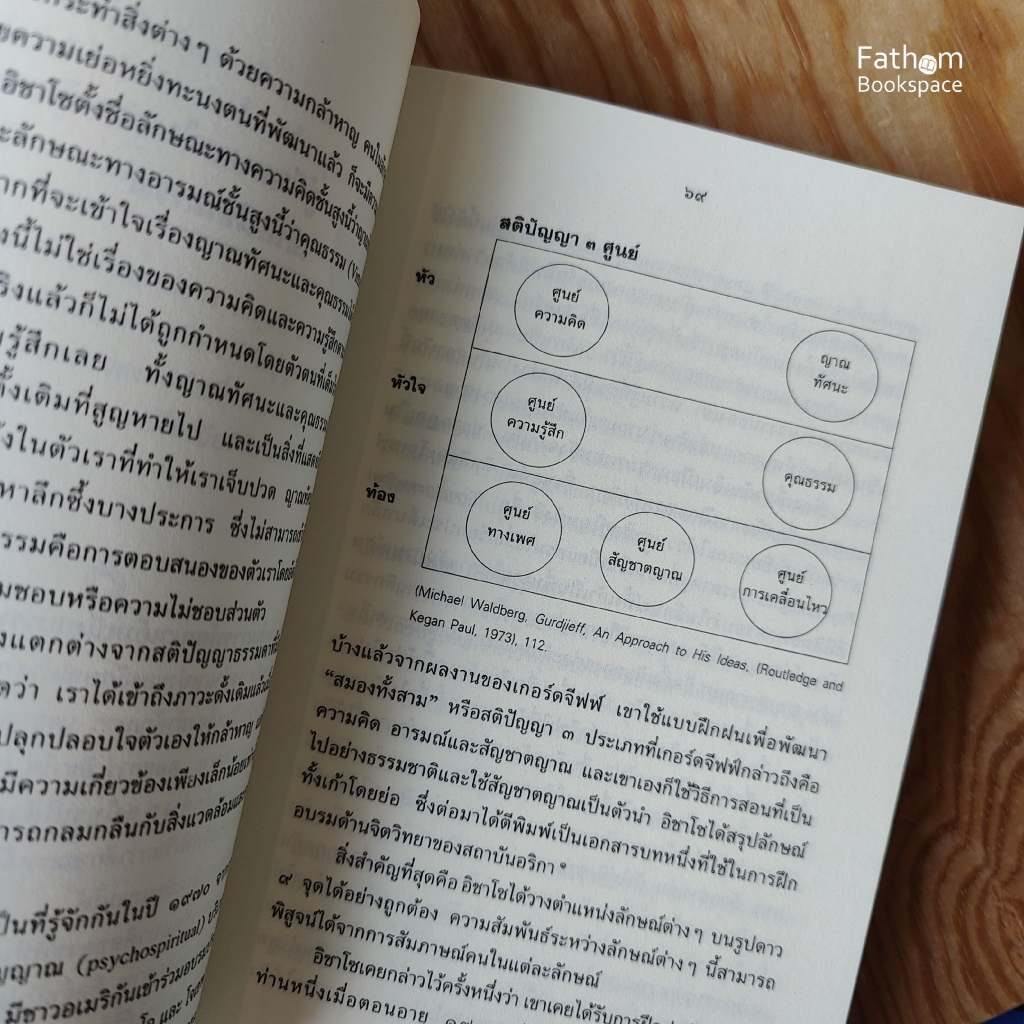 Fathom
Bookspace
กระทำสิ่งต่างๆ ด้วยความกล้าหาญ
ความเย่อหยิ่งทะนงตนที่พัฒนาแล้ว ก็จะมี
อิชาโซตั้งชื่อลักษณะทางความคิดชั้นสูงนี้ว่า
ลักษณะทางอารมณ์ชั้นสูงนี้ว่าคุณธรรม
ที่จะเข้าใจเรื่องญาณทัศนะและคุณธรรม
นี้ไม่ใช่เรื่องของความคิดและความรู้สึก
แล้วก็ไม่ได้ถูกกำหนดโดยตัวตนที่
รู้สึกเลย ทั้งญาณทัศนะและคุณธรรม
ดั้งเดิมที่สูญหายไป และเป็นสิ่งที่
ในตัวเราที่ทำให้เราเจ็บปวด
หาลึกซึ้งบางประการ ซึ่งไม่สามารถ
ธรรมคือการตอบสนองของตัวเราโดย
ชอบหรือความไม่ชอบส่วนตัว
แตกต่างจากสติปัญญาธรรมดา
ว่า เราได้เข้าถึงภาวะดั้งเดิมแล้ว
ปลุกปลอบใจตัวเองให้กล้าหาญ
มีความเกี่ยวข้องเพียงเล็กน้อย
กลมกลืนกับสิ่งแวดล้อม
เป็นที่รู้จักกันในปี ๑๙๗๐
(psychospiritual)
มีชาวอเมริกันเข้าร่วมอบรม
๖๙
สติปัญญา ๓ ศูนย์
หัว
ศูนย์
ความคิด
ญาณ
ทัศนะ
หัวใจ
ศูนย์
ความรู้สึก
คุณธรรม
ท้อง
ศูนย์
ทางเพศ
ศูนย์
สัญชาตญาณ
ศูนย์
การเคลื่อนไหว
(Michael Waldberg, Gurdjieff, An Approach to His Ideas, (Routledge and
Kegan Paul, 1973), 112.
บ้างแล้วจากผลงานของเกอร์ดจีฟฟ์ เขาใช้แบบฝึกฝนเพื่อพัฒนา
“สมองทั้งสาม” หรือสติปัญญา ๓ ประเภทที่เกอร์ดจีฟฟ์กล่าวถึงคือ
ความคิด อารมณ์และสัญชาตญาณ และเขาเองก็ใช้วิธีการสอนที่เป็น
ไปอย่างธรรมชาติและใช้สัญชาตญาณเป็นตัวนำ อิชาโซได้สรุปลักษณ์
ทั้งเก้าโดยย่อ ซึ่งต่อมาได้ตีพิมพ์เป็นเอกสารบทหนึ่งที่ใช้ในการฝึก
อบรมด้านจิตวิทยาของสถาบันอริกา
สิ่งสำคัญที่สุดคือ อิชาโซได้วางตำแหน่งลักษณ์ต่างๆ บนรูปดาว
๙ จุดได้อย่างถูกต้อง ความสัมพันธ์ระหว่างลักษณ์ต่างๆ นี้สามารถ
พิสูจน์ได้จากการสัมภาษณ์คนในแต่ละลักษณ์
อิชาโซเคยกล่าวไว้ครั้งหนึ่งว่า เขาเคยได้รับการฝึก
ท่านหนึ่งเมื่อตอนอายุ